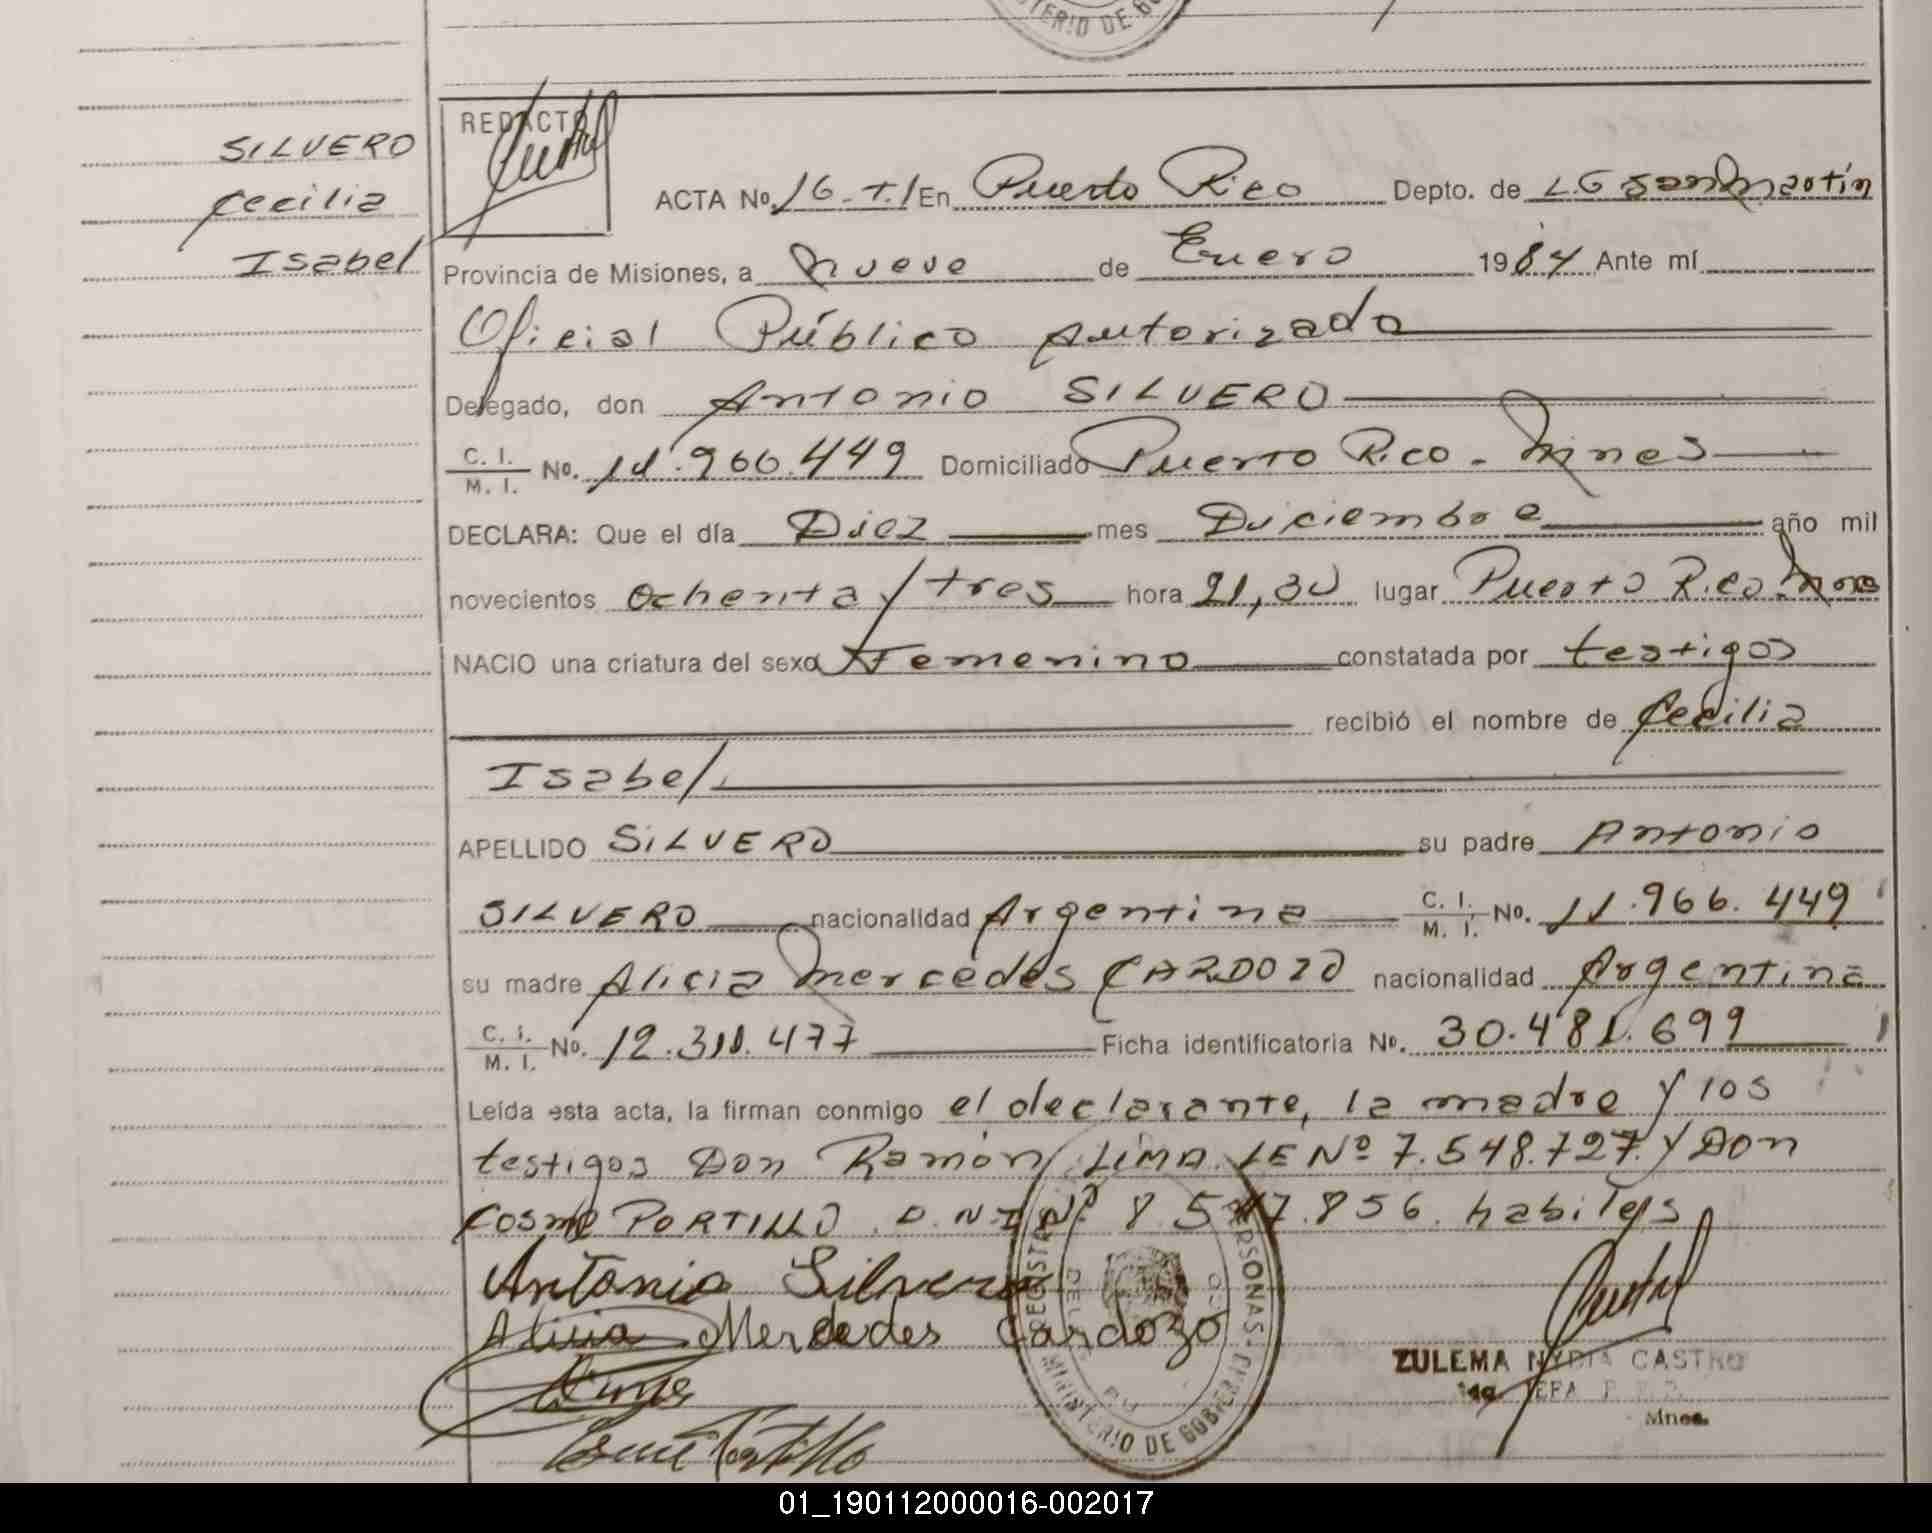 TERIO DE GO
SILVERO
Cecilia
Isabel
REDACTO
ACTA No. 16-T.I En Puerto Rico Depto. de L.G San Martín
Provincia de Misiones, a Nueve de Enero 1984 Ante mí
Oficial Público Autorizado
Delegado, don Antonio SILVERO
C. I. / M. I. No. 11.966.449 Domiciliado Puerto Rico - Mnes
DECLARA: Que el día Diez mes Diciembre año mil
novecientos ochenta y tres hora 21,30 lugar Puerto Rico Mnes
NACIO una criatura del sexo Femenino constatada por testigos
recibió el nombre de Cecilia
Isabel
APELLIDO SILVERO su padre Antonio
SILVERO nacionalidad Argentina C. I. / M. I. No. 11.966.449
su madre Alicia Mercedes CARDOZO nacionalidad Argentina
C. I. / M. I. No. 12.311.477 Ficha identificatoria No. 30.481.699
Leída esta acta, la firman conmigo el declarante, la madre y los
testigos Don Ramón LIMA. LE Nº 7.548.727. y Don
Cosme PORTILLO. D.N.I Nº 8.547.856. habiles
Antonio Silvero
Alicia Mercedes Cardozo
Cosme Portillo
MINISTERIO DE GOBIERNO
ZULEMA NYDIA CASTRO
JEFA
Mnes.
01_190112000016-002017